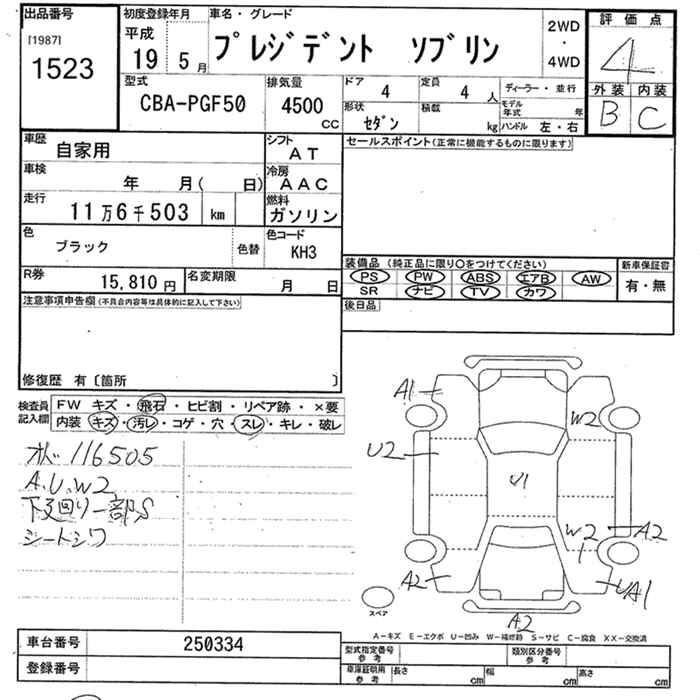 出品番号
[1987]
1523
初度登録年月
平成
19 5月
車名・グレード
プレジデント ソブリン
2WD
・
4WD
評価点
4
外装 内装
B C
型式
CBA-PGF50
排気量
4500
CC
ドア 4
形状 セダン
定員 4 人
積載 kg
ディーラー・並行
モデル年式 年
ハンドル 左・右
車歴 自家用
シフト AT
セールスポイント(正常に機能するものに限ります)
車検 年 月( 日)
冷房 AAC
走行 11万6千503 km
燃料 ガソリン
色 ブラック 色替
色コード KH3
装備品 (純正品に限り○をつけてください)
PS PW ABS エアB AW
SR ナビ TV カワ
新車保証書
有・無
R券 15,810円
名変期限 月 日
後日品
注意事項申告欄(不具合内容等は具体的に記入して下さい)
修復歴 有〔箇所 〕
検査員記入欄
FW キズ・飛石・ヒビ割・リペア跡・×要
内装 キズ・汚レ・コゲ・穴・スレ・キレ・破レ
オドバ 116505
A.U.W2
下廻り一部S
シートシワ
A1
W2
U2
U1
W2
A2
A2
UA1
A2
スペア
A−キズ E−エクボ U−凹み W−補修跡 S−サビ C−腐食 XX−交換済
車台番号 250334
登録番号
型式指定番号 参考
類別区分番号 参考
車庫証明用 参考
長さ cm 幅 cm 高さ cm